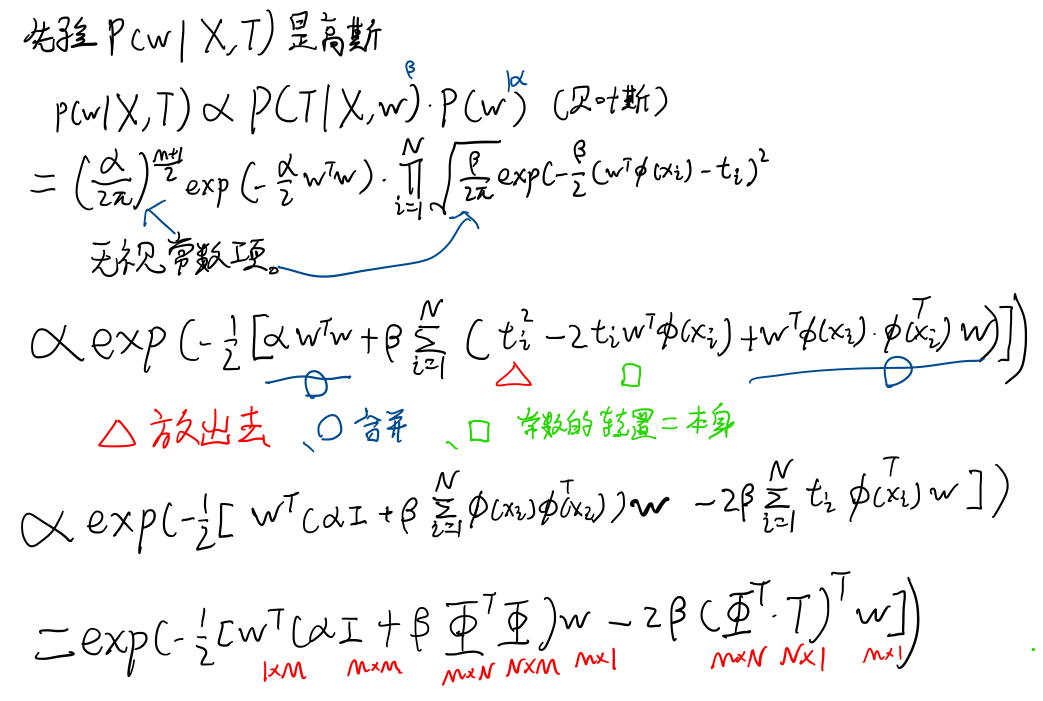 先验 P(w|X,T) 是高斯
p(w|X,T) ∝ P(T|X,w)·P(w) (贝叶斯)
β |α
= (α/2π)^{(m+1)/2} exp(-α/2 wᵀw)·∏_{i=1}^{N} √(β/2π) exp(-β/2 (wᵀϕ(xᵢ)-tᵢ)²
无视常数项。
∝ exp(-1/2[αwᵀw+β∑_{i=1}^{N}(tᵢ²-2tᵢwᵀϕ(xᵢ)+wᵀϕ(xᵢ)·ϕ(xᵢ)ᵀw)])
△ 放出去、○ 合并、□ 常数的转置=本身
∝ exp(-1/2[wᵀ(αI+β∑_{i=1}^{N}ϕ(xᵢ)ϕ(xᵢ)ᵀ)w -2β∑_{i=1}^{N}tᵢϕ(xᵢ)ᵀw])
=exp(-1/2[wᵀ(αI+βΦᵀΦ)w-2β(Φᵀ·T)ᵀw])
1×M M×M M×N N×M M×1 M×N N×1 M×1